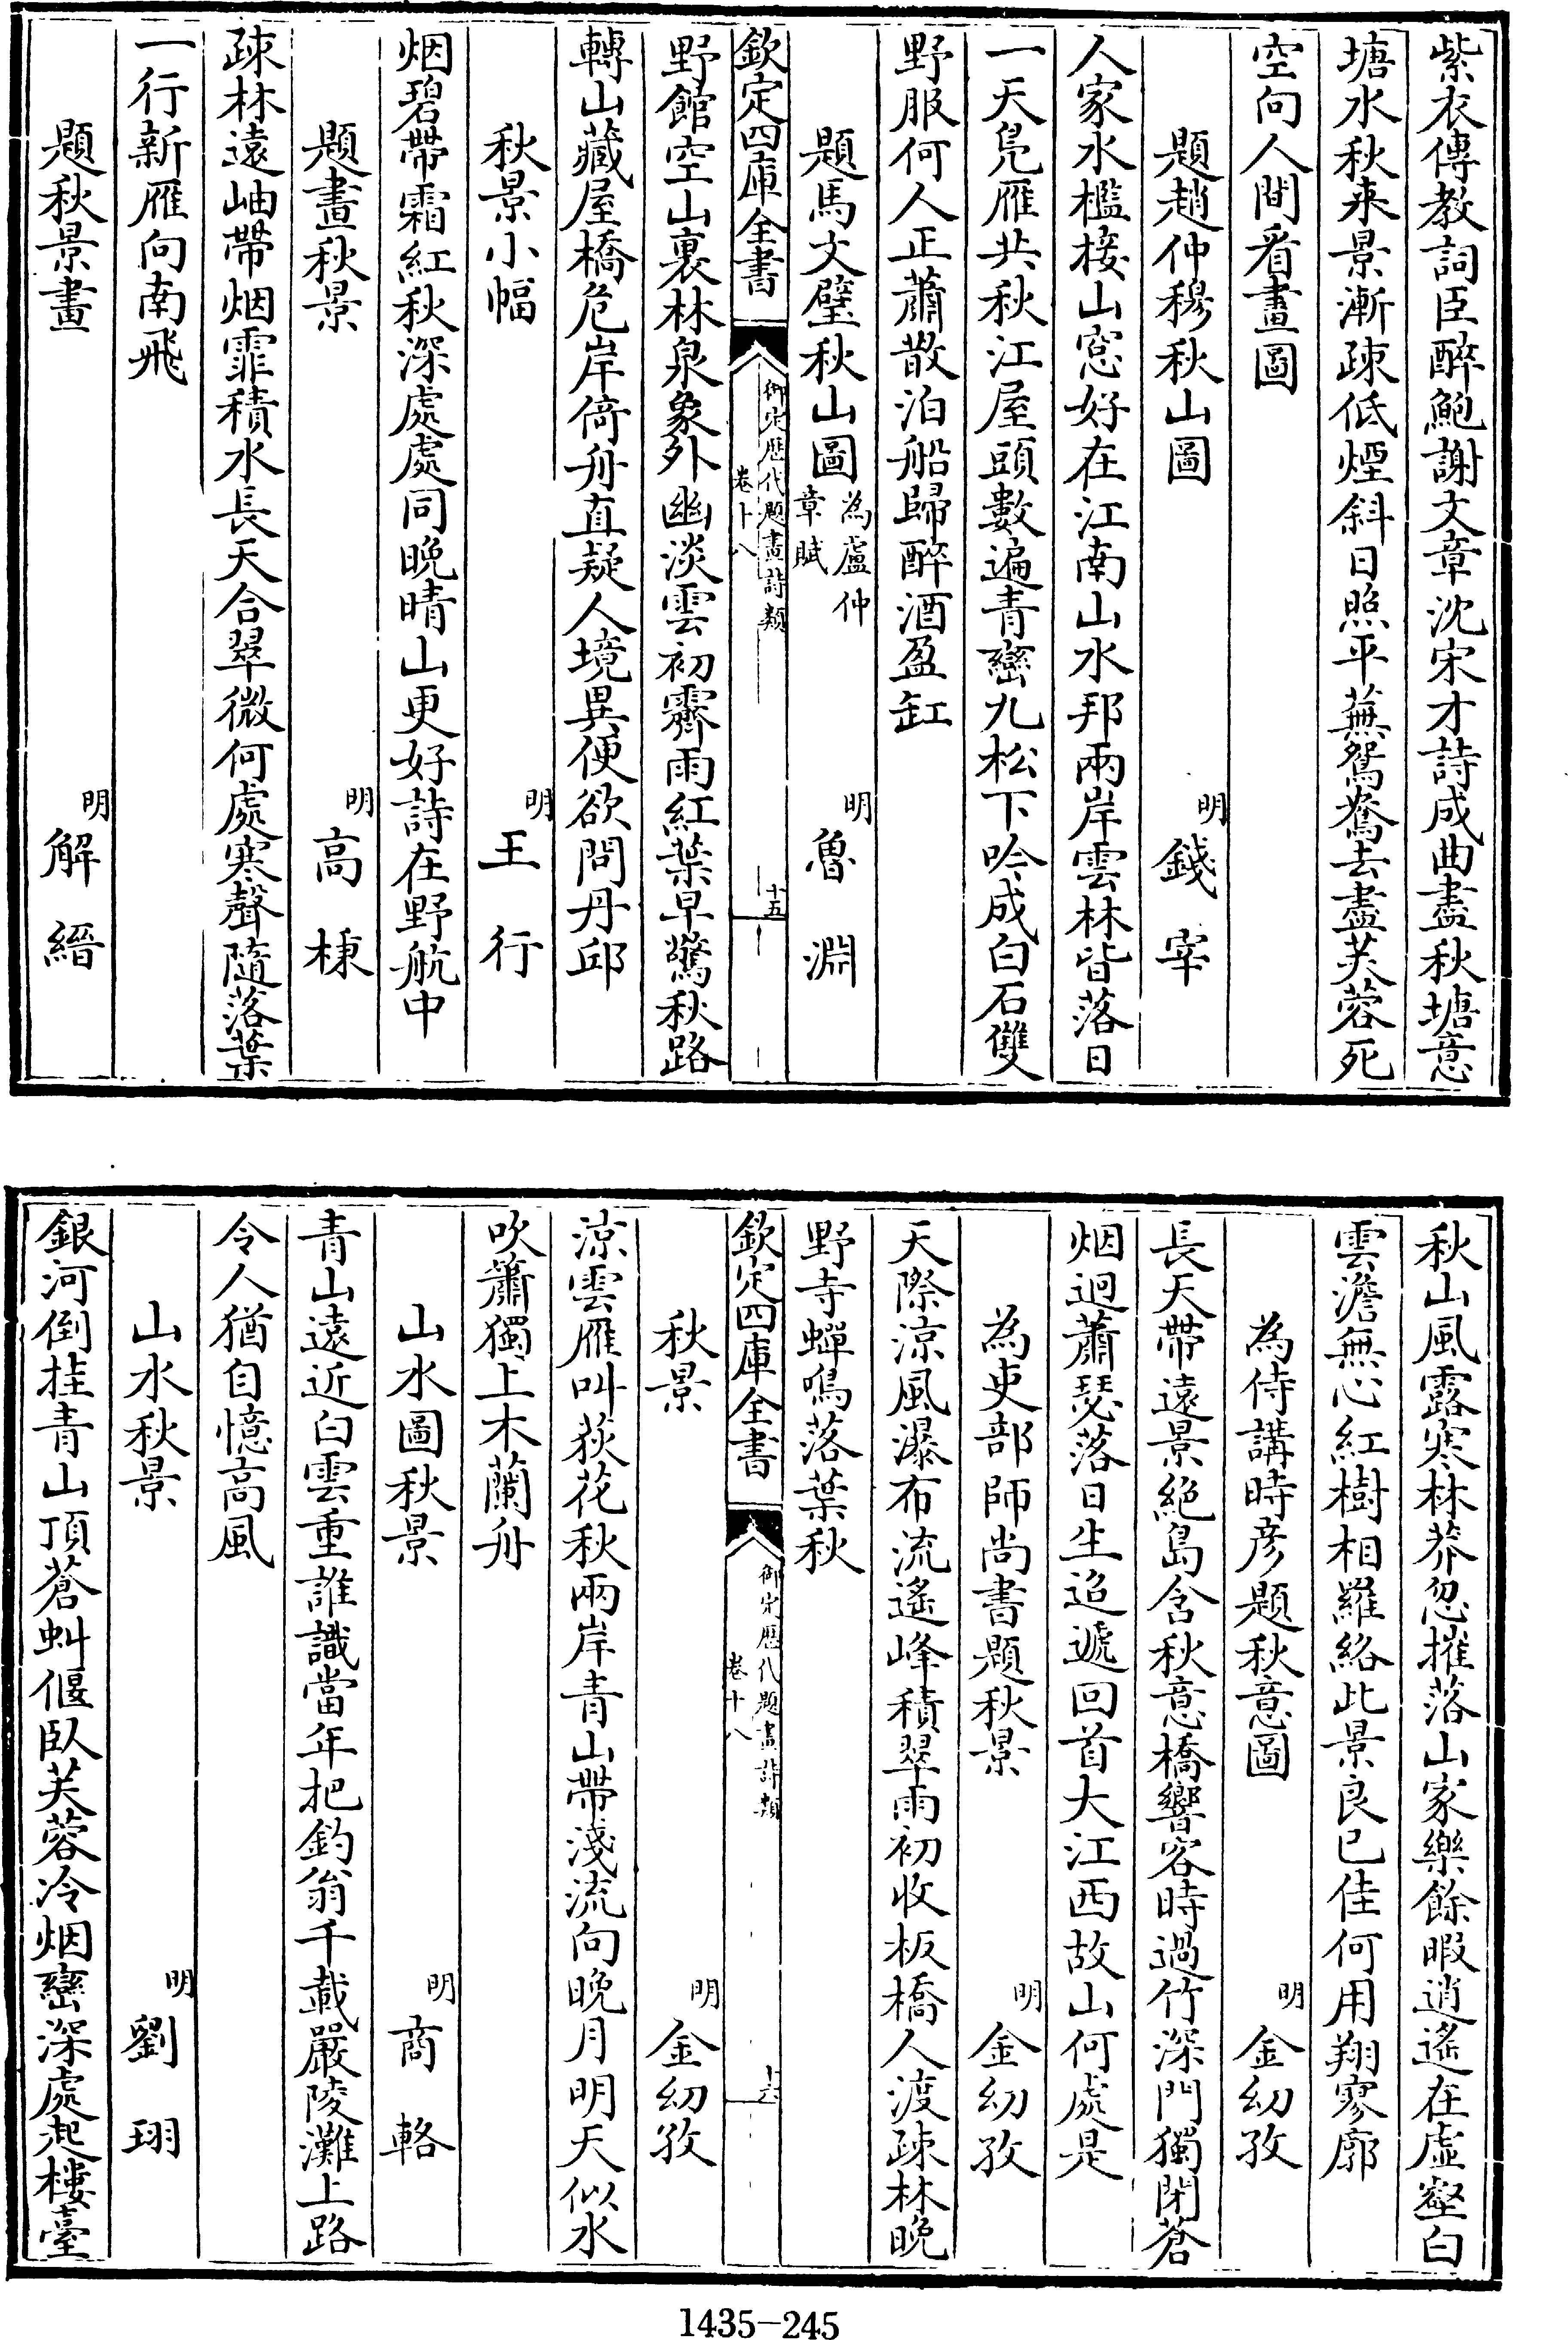 紫衣傳教詞臣醉鮑謝文章沈宋才詩成曲盡秋塘意
塘水秋来景漸疎低煙斜日照平蕪鴛鴦去盡芙蓉死
空向人間看畫圖
題趙仲穆秋山圖
明
錢宰
人家水檻接山窓好在江南山水邦兩岸雲林皆落日
一天鳧雁共秋江屋頭數遍青巒九松下吟成白石雙
野服何人正蕭散泊船歸醉酒盈缸
題馬文璧秋山圖
為盧仲
章賦
明
魯淵
欽定四庫全書
御定歴代題畫詩類
卷十八
十五
野館空山裏林泉象外幽淡雲初霽雨紅葉早驚秋路
轉山藏屋橋危岸倚舟直疑人境異便欲問丹邱
秋景小幅
明
王行
烟碧帶霜紅秋深處處同晚晴山更好詩在野航中
題畫秋景
明
高棅
疎林遠岫帶烟霏積水長天合翠微何處寒聲隨落葉
一行新雁向南飛
題秋景畫
明
解縉
秋山風露寒林莽忽摧落山家樂餘暇逍遙在虛壑白
雲澹無心紅樹相羅絡此景良已佳何用翔寥廓
為侍講時彦題秋意圖
明
金幼孜
長天帶遠景絶島含秋意橋響客時過竹深門獨閉蒼
烟迥蕭瑟落日生迢遞回首大江西故山何處是
為吏部師尚書題秋景
明
金幼孜
天際涼風瀑布流遙峰積翠雨初收板橋人渡疎林晚
野寺蟬鳴落葉秋
欽定四庫全書
御定歴代題畫詩類
卷十八
十六
秋景
明
金幼孜
涼雲雁叫荻花秋兩岸青山帶淺流向晚月明天似水
吹簫獨上木蘭舟
山水圖秋景
明
商輅
青山遠近白雲重誰識當年把釣翁千載嚴陵灘上路
令人猶自憶高風
山水秋景
明
劉珝
銀河倒挂青山頂蒼虬偃臥芙蓉冷烟巒深處起樓臺
1435-245